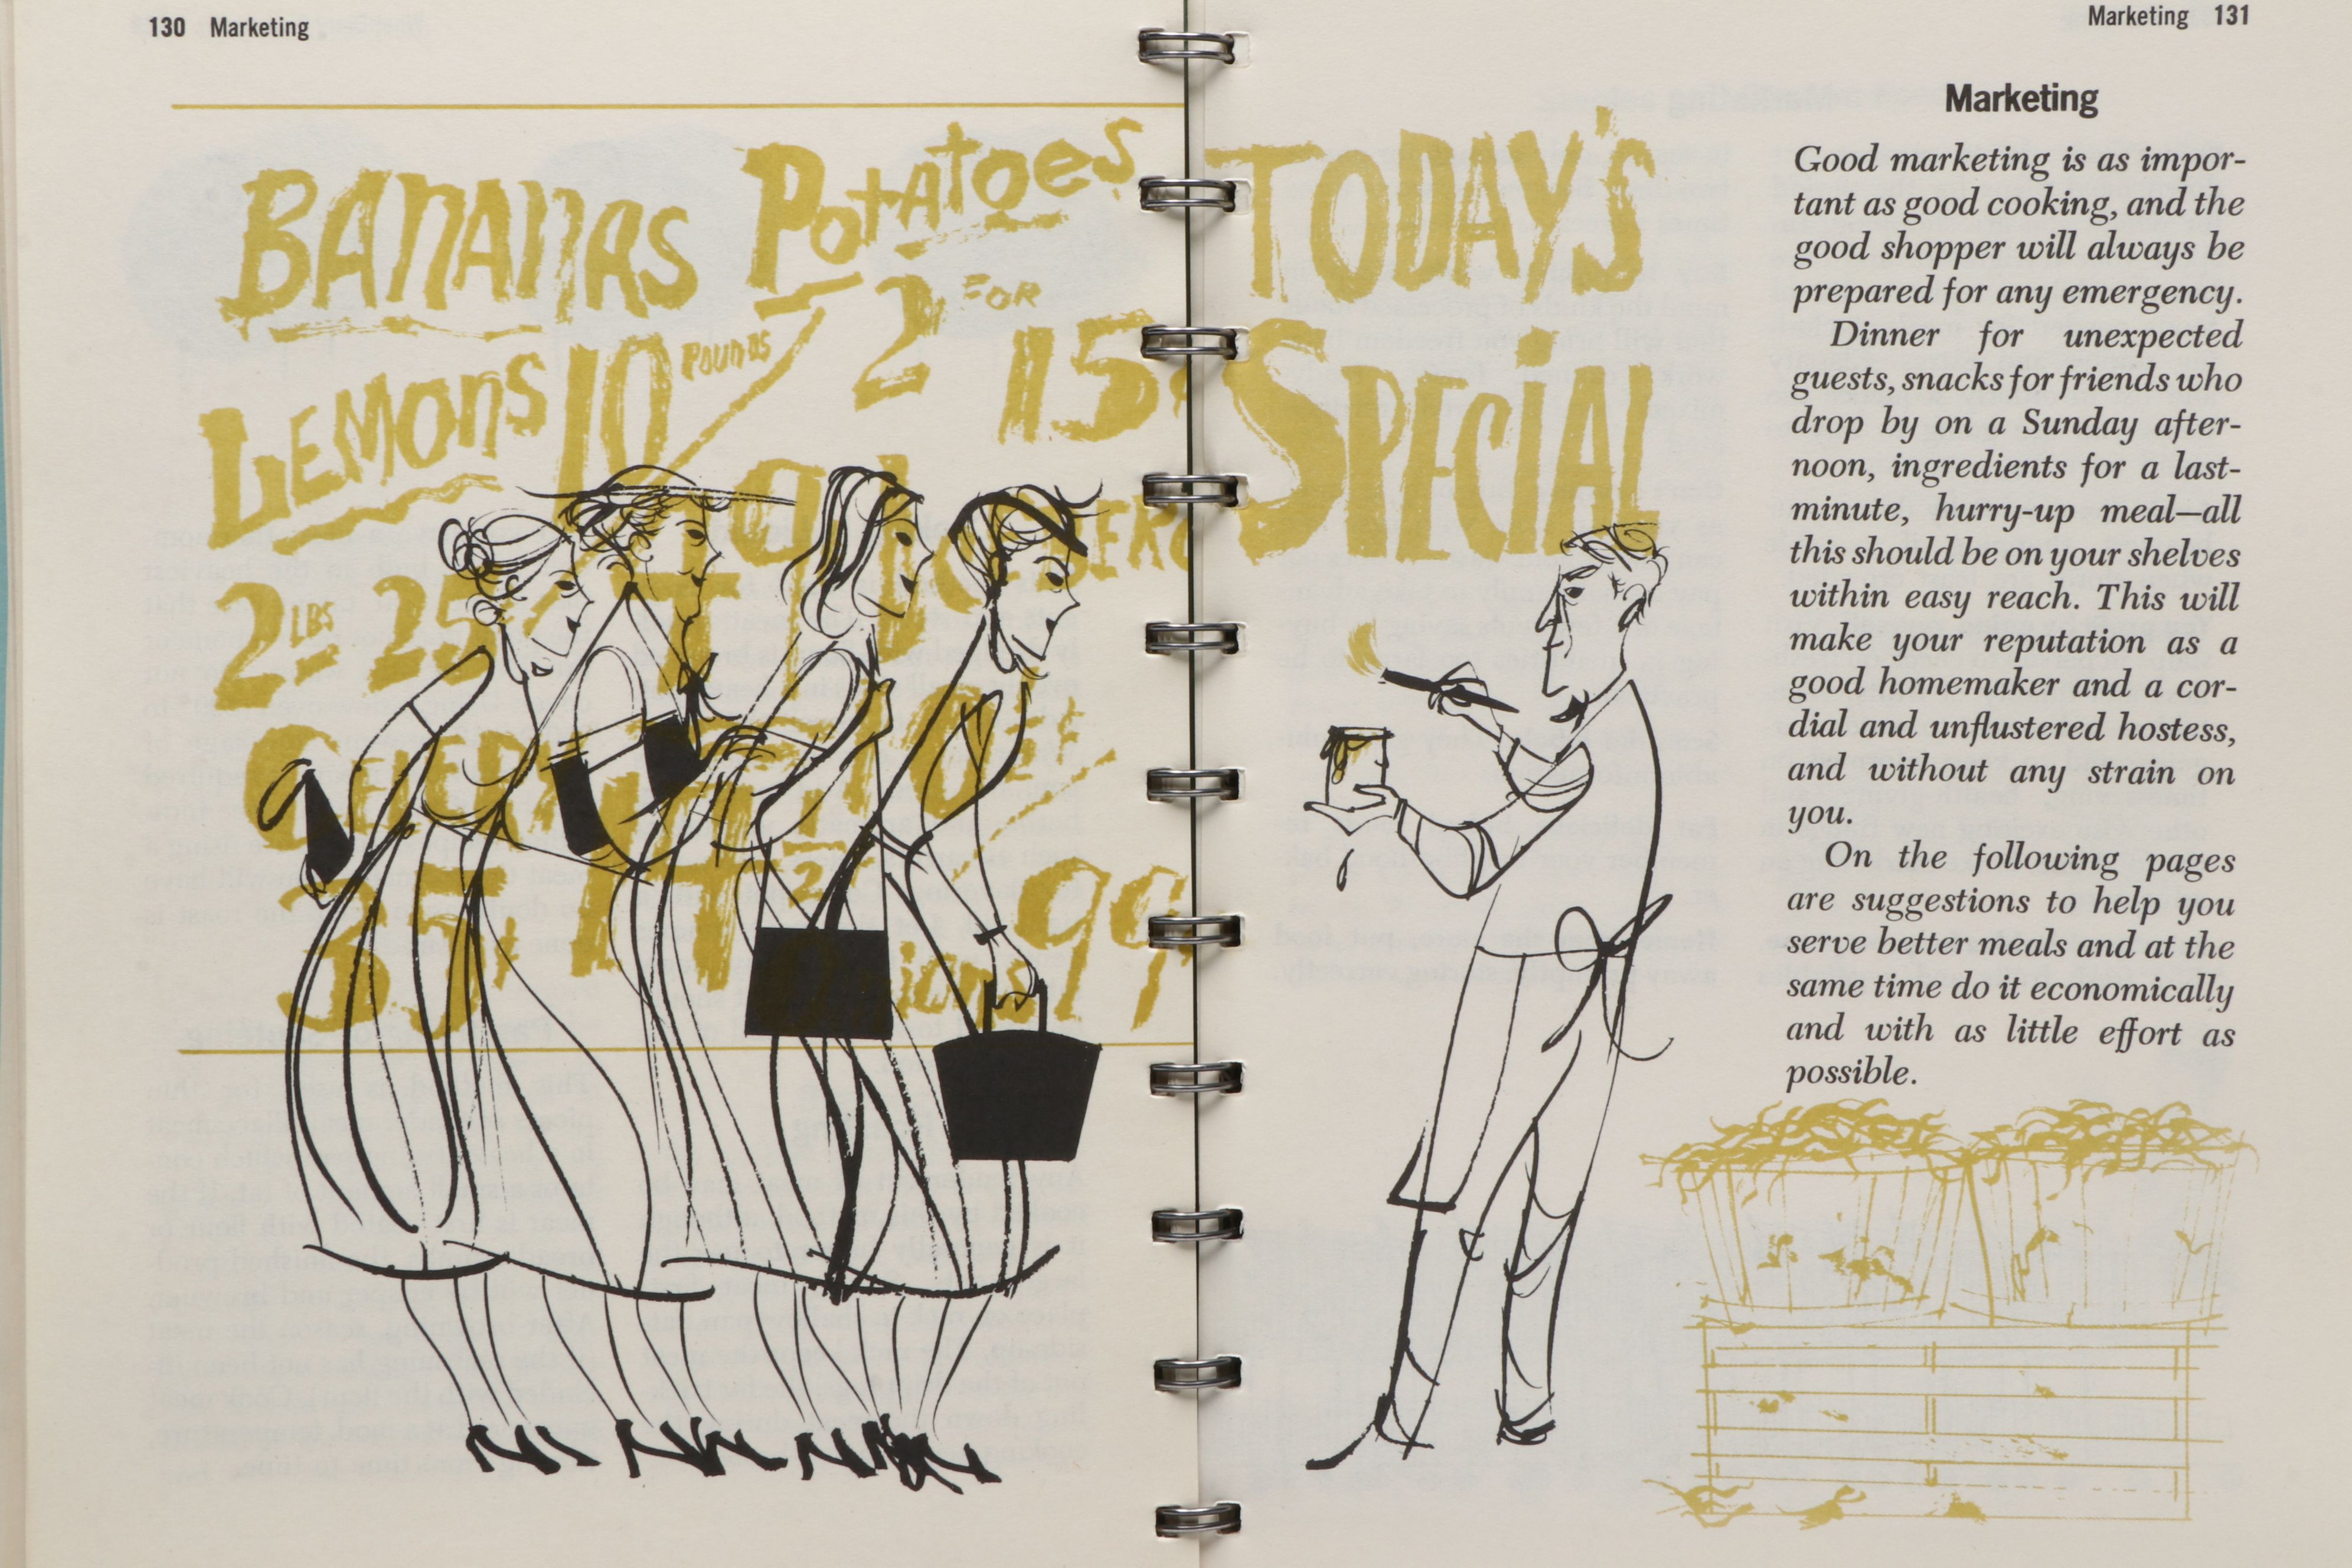 130 Marketing
BANANAS
POTATOES
2 FOR
15¢
LEMONS 10 POUNDS
2 LBS 25¢
35¢
99¢
Marketing 131
TODAY'S
SPECIAL
Marketing
Good marketing is as impor-
tant as good cooking, and the
good shopper will always be
prepared for any emergency.
Dinner for unexpected
guests, snacks for friends who
drop by on a Sunday after-
noon, ingredients for a last-
minute, hurry-up meal—all
this should be on your shelves
within easy reach. This will
make your reputation as a
good homemaker and a cor-
dial and unflustered hostess,
and without any strain on
you.
On the following pages
are suggestions to help you
serve better meals and at the
same time do it economically
and with as little effort as
possible.